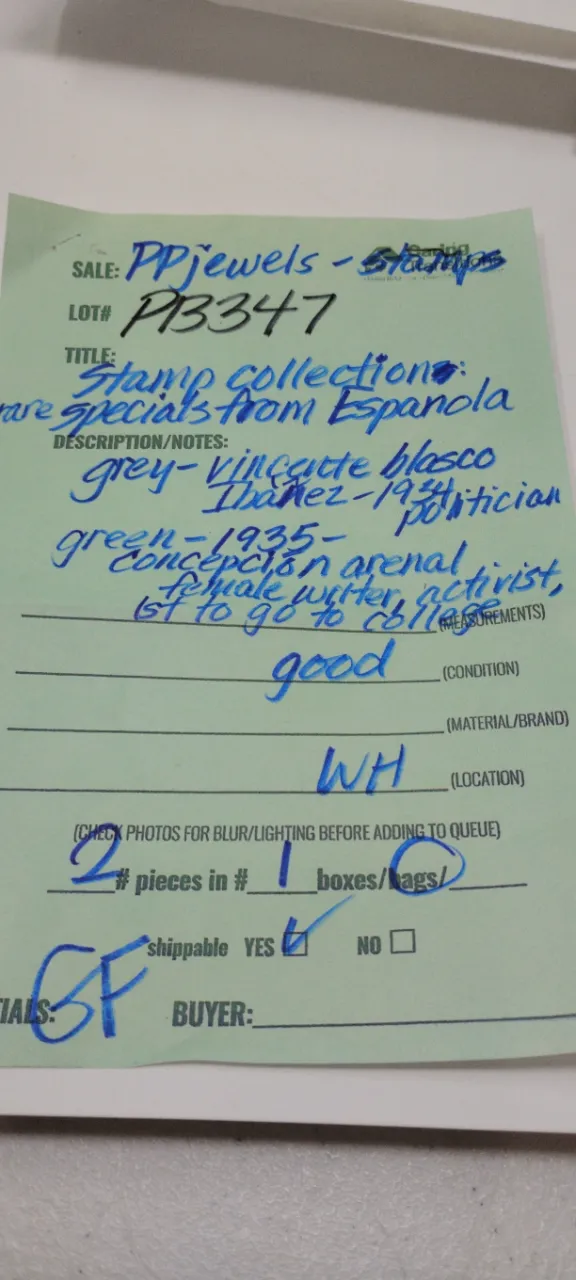 SALE: PPjewels - stamps
LOT# PB347
TITLE:
Stamp collection:
rare specials from Espanola
DESCRIPTION/NOTES:
grey - vincente blasco
Ibáñez - 1934
politician
green - 1935 -
concepción arenal
female writer, activist,
1st to go to college
(MEASUREMENTS)
good (CONDITION)
(MATERIAL/BRAND)
WH (LOCATION)
(CHECK PHOTOS FOR BLUR/LIGHTING BEFORE ADDING TO QUEUE)
2 # pieces in # 1 boxes/bags/
shippable YES NO
TIALS: GF BUYER: